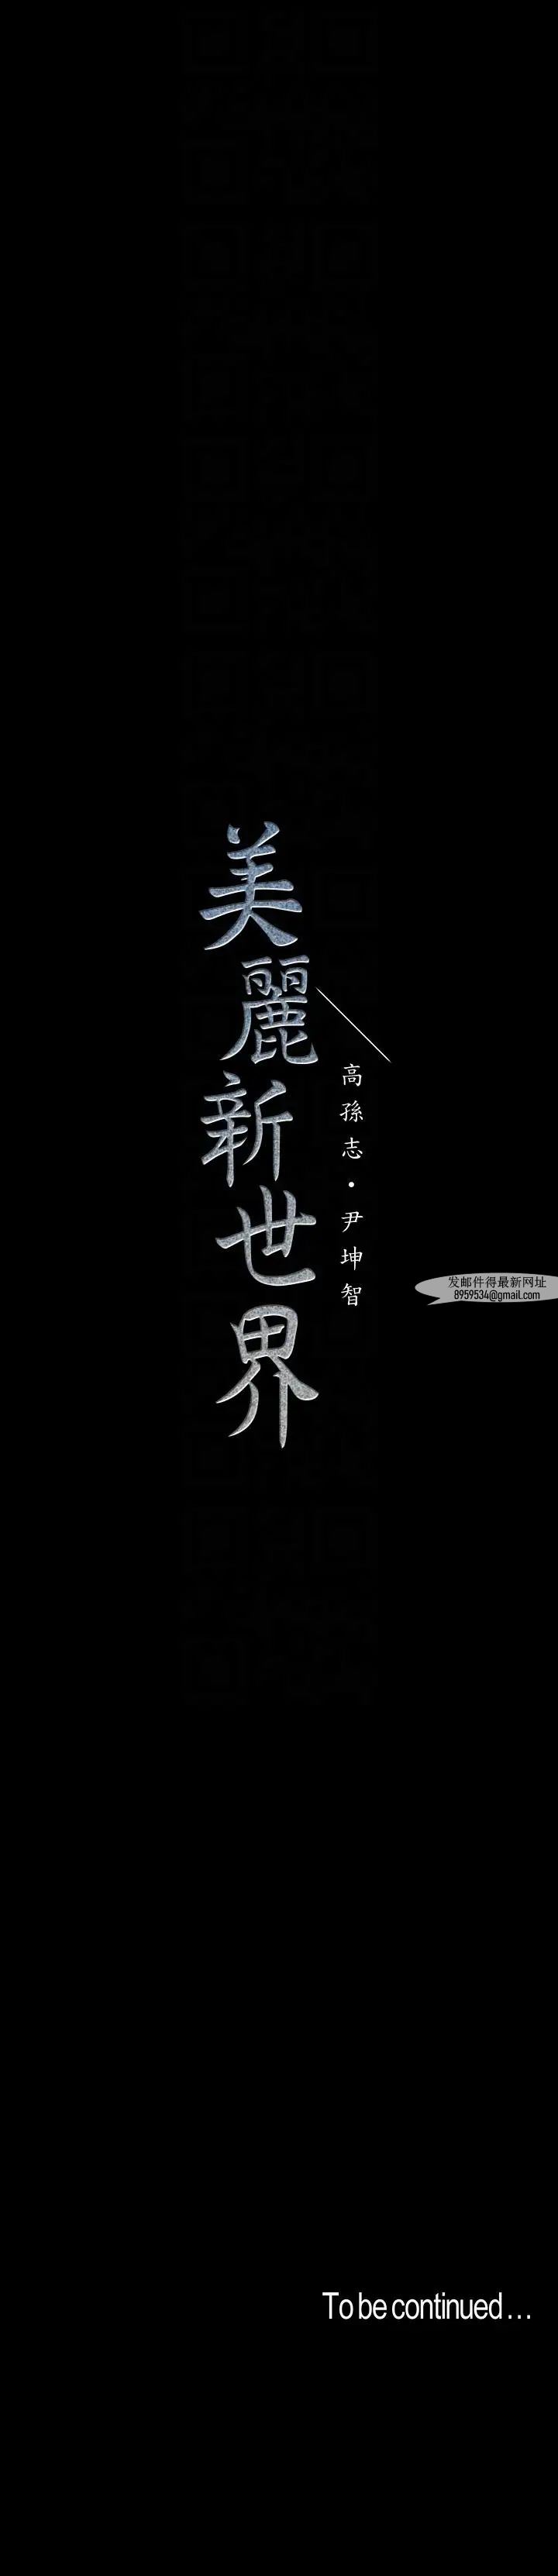 美麗新世界
高孫志·尹坤智
发邮件得最新网址
8959534@gmail.com
To be continued...